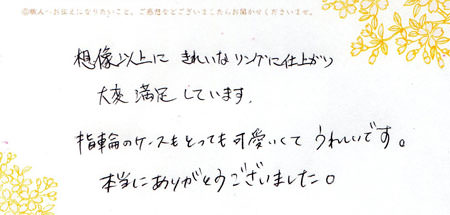 ◎職人へお伝えになりたいこと、ご感想などございましたらお聞かせくださいませ。
想像以上に きれいなリングに仕上がり
大変満足しています.
指輪のケースもとっても可愛いくて うれしいです。
本当にありがとうございました。